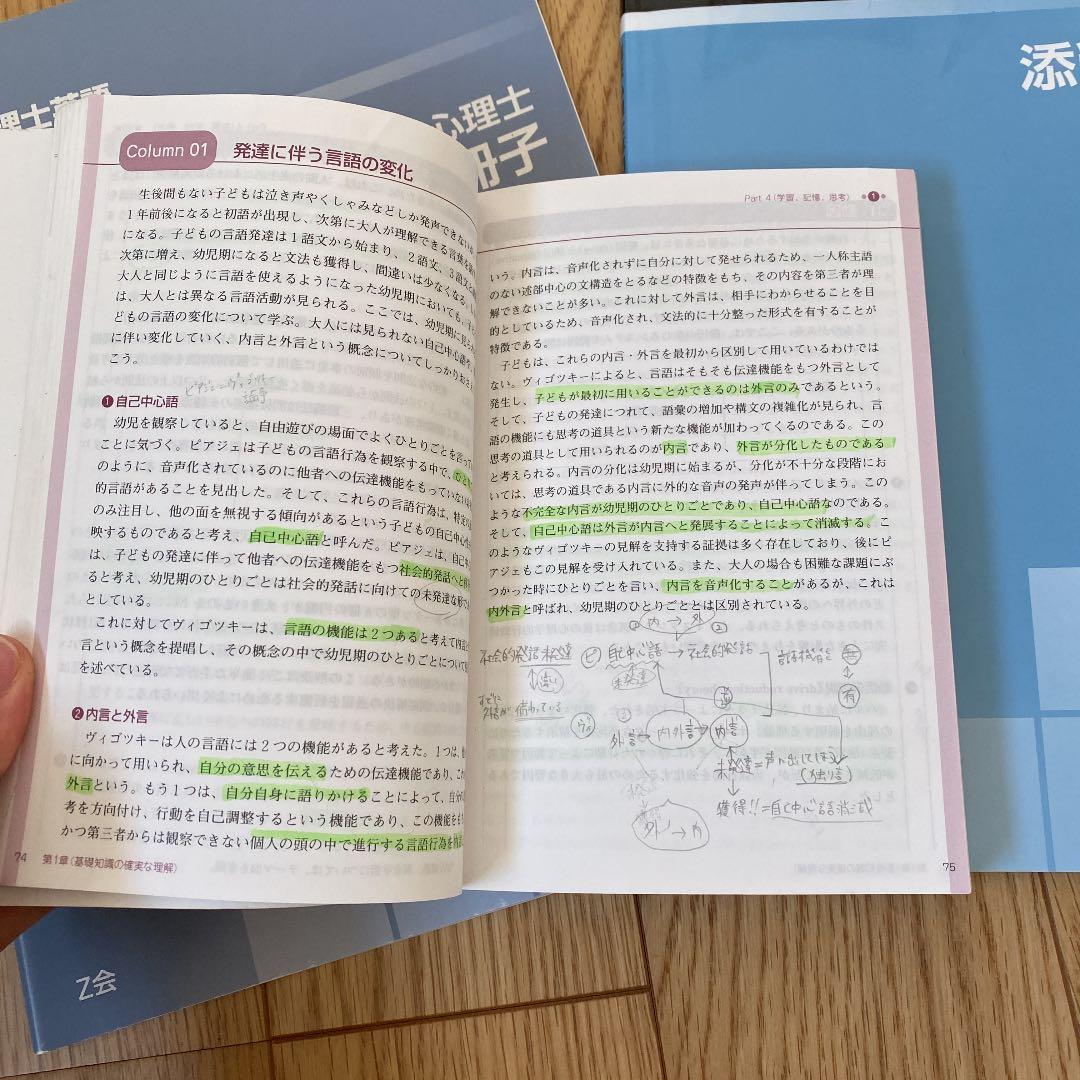 理士英語
心理士
冊子
添
Column 01 発達に伴う言語の変化
生後間もない子どもは泣き声やくしゃみなどしか発声できない
1年前後になると初語が出現し、次第に大人が理解できる言葉を
になる。子どもの言語発達は1語文から始まり、2語文、3語文
次第に増え、幼児期になると文法も獲得し、間違いは少なくなる。
大人と同じように言語を使えるようになった幼児期においても、
は、大人とは異なる言語活動が見られる。ここでは、幼児期に
どもの言語の変化について学ぶ。大人には見られない自己中心語や、
に伴い変化していく、内言と外言という概念についてしっかりおさ
こう。
❶ 自己中心語
幼児を観察していると、自由遊びの場面でよくひとりごとを言って
ことに気づく。ピアジェは子どもの言語行為を観察する中で、ひと
のように、音声化されているのに他者への伝達機能をもっていない
的言語があることを見出した。そして、これらの言語行為は、特定の
のみ注目し、他の面を無視する傾向があるという子どもの自己中心
映するものであると考え、自己中心語と呼んだ。ピアジェは、自己
は、子どもの発達に伴って他者への伝達機能をもつ社会的発話へと
ると考え、幼児期のひとりごとは社会的発話に向けての未発達な形
としている。
これに対してヴィゴツキーは、言語の機能は2つあると考えて内言
言という概念を提唱し、その概念の中で幼児期のひとりごとについて
を述べている。
❷ 内言と外言
ヴィゴツキーは人の言語には2つの機能があると考えた。1つは、
に向かって用いられ、自分の意思を伝えるための伝達機能であり、これ
外言という。もう1つは、自分自身に語りかけることによって、自分
考を方向付け、行動を自己調整するという機能であり、この機能をも
かつ第三者からは観察できない個人の頭の中で進行する言語行為を内言
74 第1章(基礎知識の確実な理解)
Part 4(学習、記憶、思考) ❶
いう。内言は、音声化されずに自分に対して発せられるため、一人称主語
のない述部中心の文構造をとるなどの特徴をもち、その内容を第三者が理
解できないことが多い。これに対して外言は、相手にわからせることを目
的としているため、音声化され、文法的に十分整った形式を有することが
特徴である。
子どもは、これらの内言・外言を最初から区別して用いているわけでは
ない。ヴィゴツキーによると、言語はそもそも伝達機能をもつ外言として
発生し、子どもが最初に用いることができるのは外言のみであるという。
そして、子どもの発達につれて、語彙の増加や構文の複雑化が見られ、言
語の機能にも思考の道具という新たな機能が加わってくるのである。この
思考の道具として用いられるのが内言であり、外言が分化したものである
と考えられる。内言の分化は幼児期に始まるが、分化が不十分な段階にお
いては、思考の道具である内言に外的な音声の発声が伴ってしまう。この
ような不完全な内言が幼児期のひとりごとであり、自己中心語なのである。
そして、自己中心語は外言が内言へと発展することによって消滅する。こ
のようなヴィゴツキーの見解を支持する証拠は多く存在しており、後にピ
アジェもこの見解を受け入れている。また、大人の場合も困難な課題にぶ
つかった時にひとりごとを言い、内言を音声化することがあるが、これは
内外言と呼ばれ、幼児期のひとりごととは区別されている。
① 内 → 外 ②
社会的発話未発達 ピ 自己中心語 → 社会的発話 無
未発達
違い
有
逆
外言 → 内外言 → 内言
未発達=声に出てしまう
(独り言)
獲得!!=自己中心語消滅
外 → 内
75
Z会